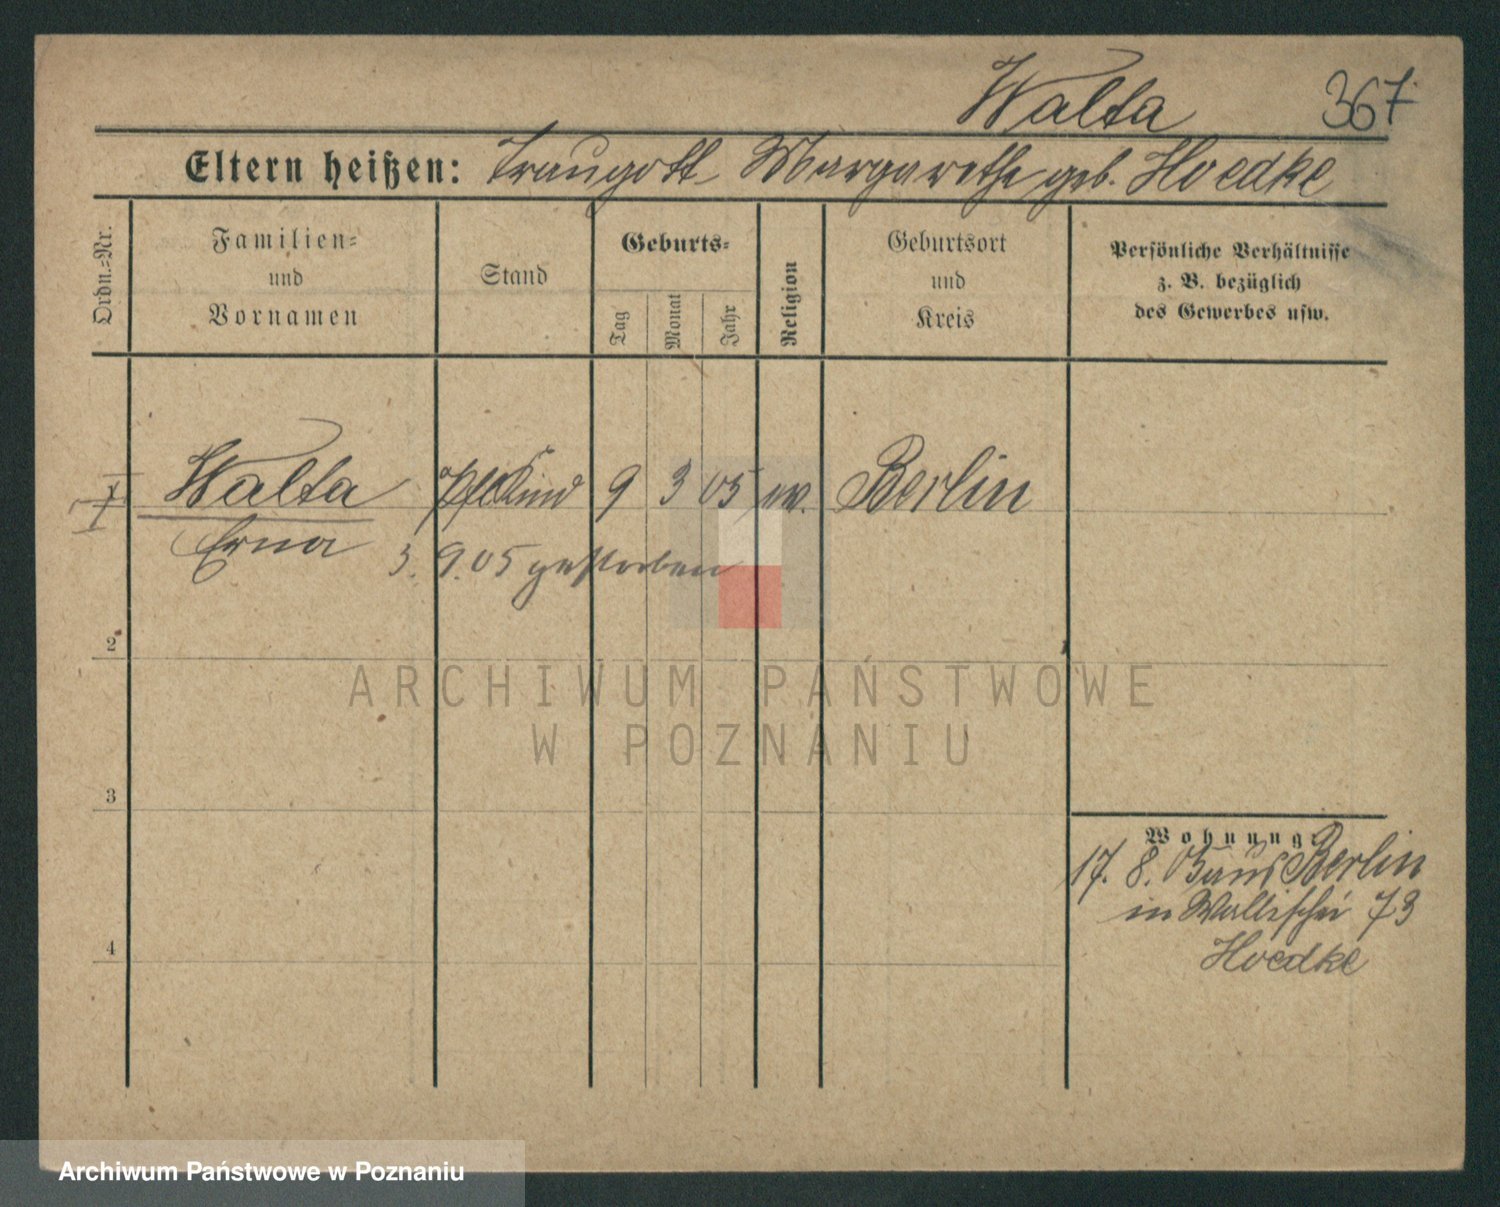 Walta 367
Eltern heißen: Traugott Margarethe geb. Hoedke
Ordn.-Nr.
Familien-
und
Vornamen
Stand
Geburts-
Tag
Monat
Jahr
Religion
Geburtsort
und
Kreis
Persönliche Verhältnisse
z. B. bezüglich
des Gewerbes usw.
1 Walta Pflkind 9 3 05 ev. Berlin
Erna
3. 9. 05 gestorben
2
3
4
Wohnung:
17. 8. 05 aus Berlin
in Wallischei 73
Hoedke
ARCHIWUM PAŃSTWOWE
W POZNANIU
Archiwum Państwowe w Poznaniu